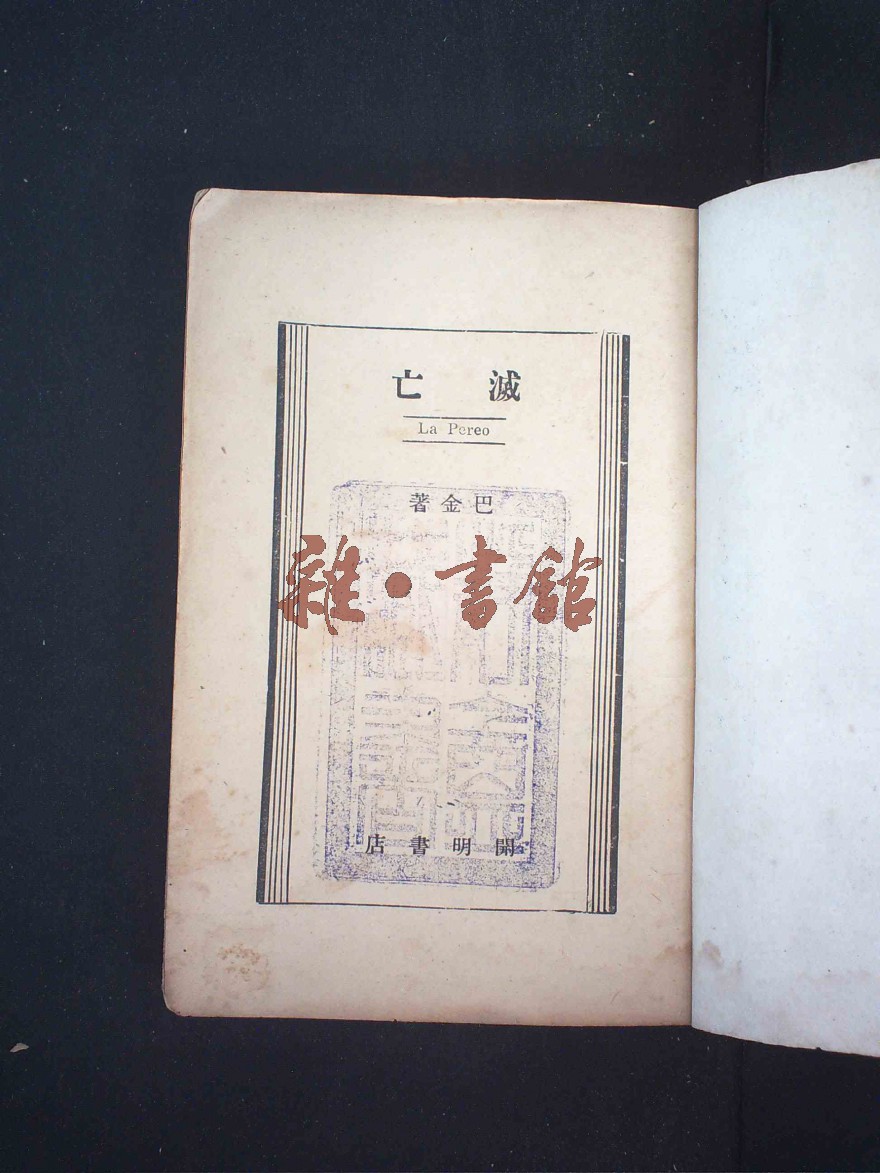 滅亡
La Pereo
巴金著
雜·書館
開明書店